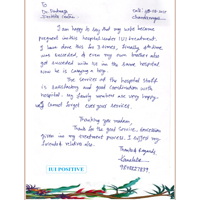 To
Dr.
Fertility Centre
Date:
Chandanagar
I am happy to say that my wife become
pregnant in this hospital under IUI treatment.
I have done this for 3 times, finally 4th time
was succeeded, & even my own brother also
got succeeded with IUI in the same hospital
now he is carrying a boy.
The services of the hospital staff
is satisfactory and good coordination with
hospital. my family members are very happy
will cannot forget ever your services.
Thanking you madam,
Thanks for the good service, concession
given in my treatment process. I suffer my
friends & relative also.
Thanks & Regards
IUI POSITIVE